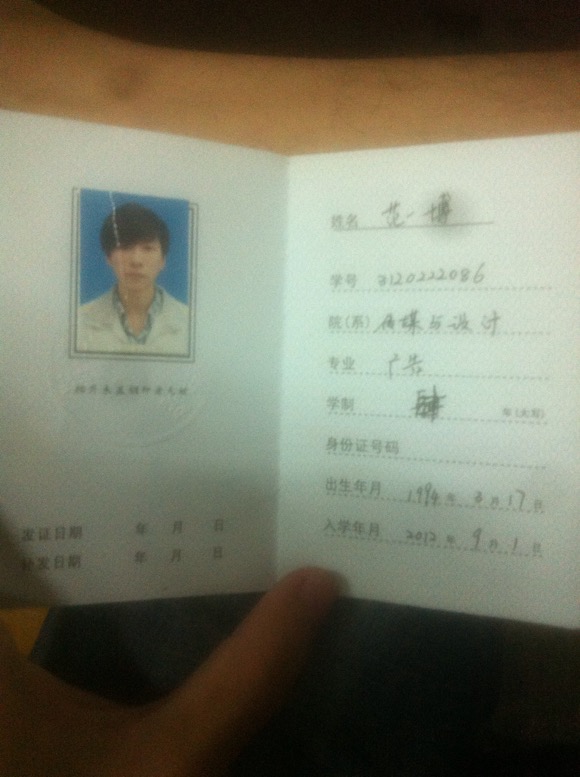 相片未盖钢印者无效
发证日期 年 月 日
补发日期 年 月 日
姓名 范一博
学号 3120222086
院(系) 传媒与设计
专业 广告
学制 肆 年(大写)
身份证号码
出生年月 1994年 3月 17日
入学年月 2012年 9月 1日